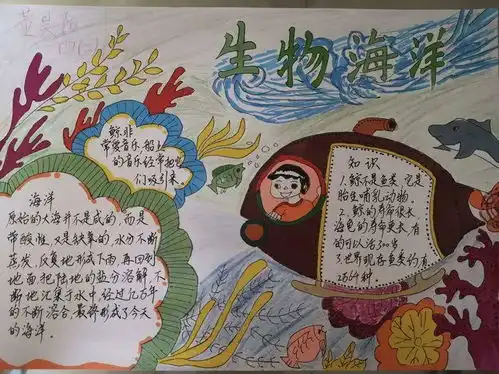 生物海洋
鲸非
常爱音乐,船上
的音乐经常把它
们吸引来.
海洋
原始的大海并不是咸的,而是
带酸性,又是缺氧的,水分不断
蒸发,反复地形成下雨,再回到
地面把陆地的盐分溶解,不
断地汇集于水中,经过亿万年
的不断溶合,最终形成了今天
的海洋.
知识
1.鲸不是鱼类,它是
胎生哺乳动物.
2.鲸的寿命很长
海龟的寿命更长,有
的可以活300岁
3.世界现存鱼类约有